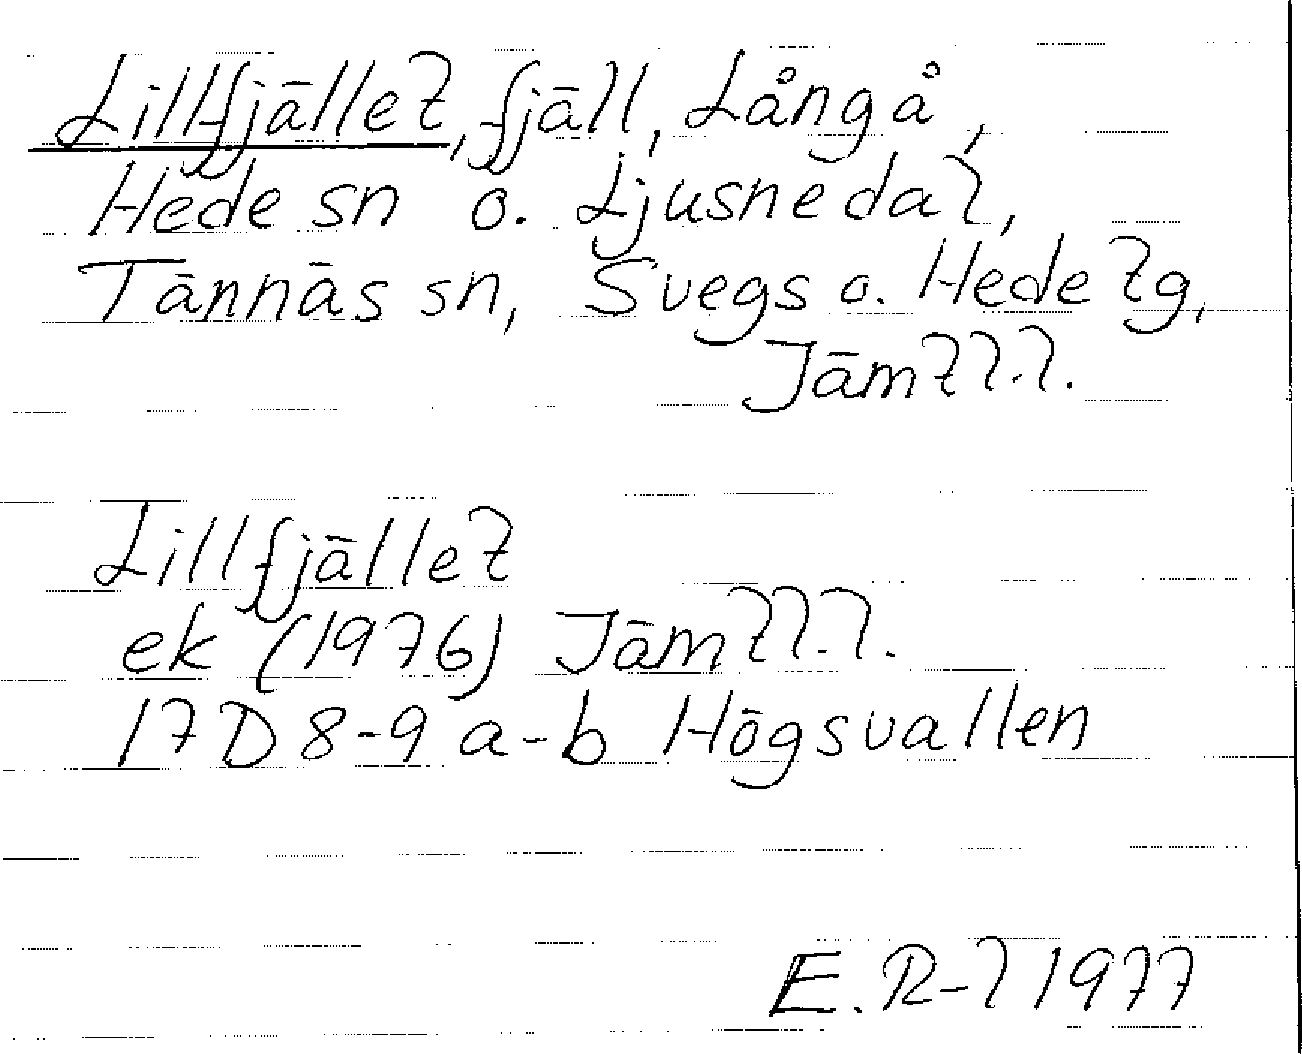 Lillfjället, fjäll, Långå,
Hede sn o. Ljusnedal,
Tännäs sn, Svegs o. Hede tg,
Jämtl.l.
Lillfjället
ek (1976) Jämtl.l.
17D 8-9 a-b Högsvallen
E. R-l 1977